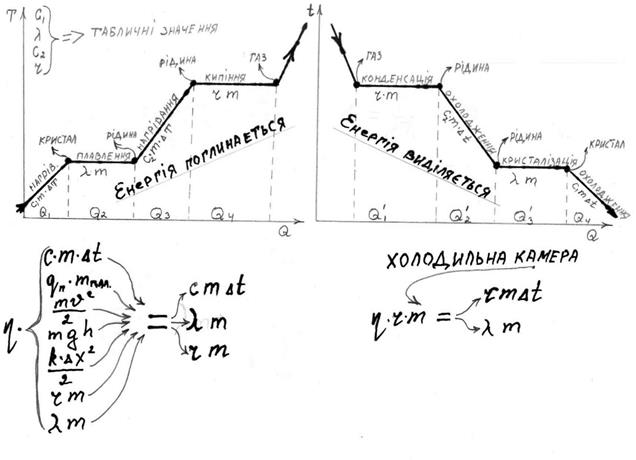 T
C₁
λ
C₂
r
=> ТАБЛИЧНІ ЗНАЧЕННЯ
НАГРІВ
c₁m·ΔT
КРИСТАЛ
ПЛАВЛЕННЯ
λ m
РІДИНА
НАГРІВАННЯ
C₂m·ΔT
РІДИНА
КИПІННЯ
r m
ГАЗ
ЕНЕРГІЯ ПОГЛИНАЄТЬСЯ
Q₁ Q₂ Q₃ Q₄
Q
t
ГАЗ
КОНДЕНСАЦІЯ
r·m
РІДИНА
ОХОЛОДЖЕННЯ
C₂m·Δt
РІДИНА
КРИСТАЛІЗАЦІЯ
λ m
КРИСТАЛ
ОХОЛОДЖЕННЯ
C₁mΔt
ЕНЕРГІЯ ВИДІЛЯЄТЬСЯ
Q₁' Q₂' Q₃' Q₄
Q
η·
c·m·Δt
qₙ·mпал.
mv²/2
mgh
k·Δx²/2
r m
λ m
=
c m Δt
λ m
r m
ХОЛОДИЛЬНА КАМЕРА
η·r·m = 
rmΔt
λ m